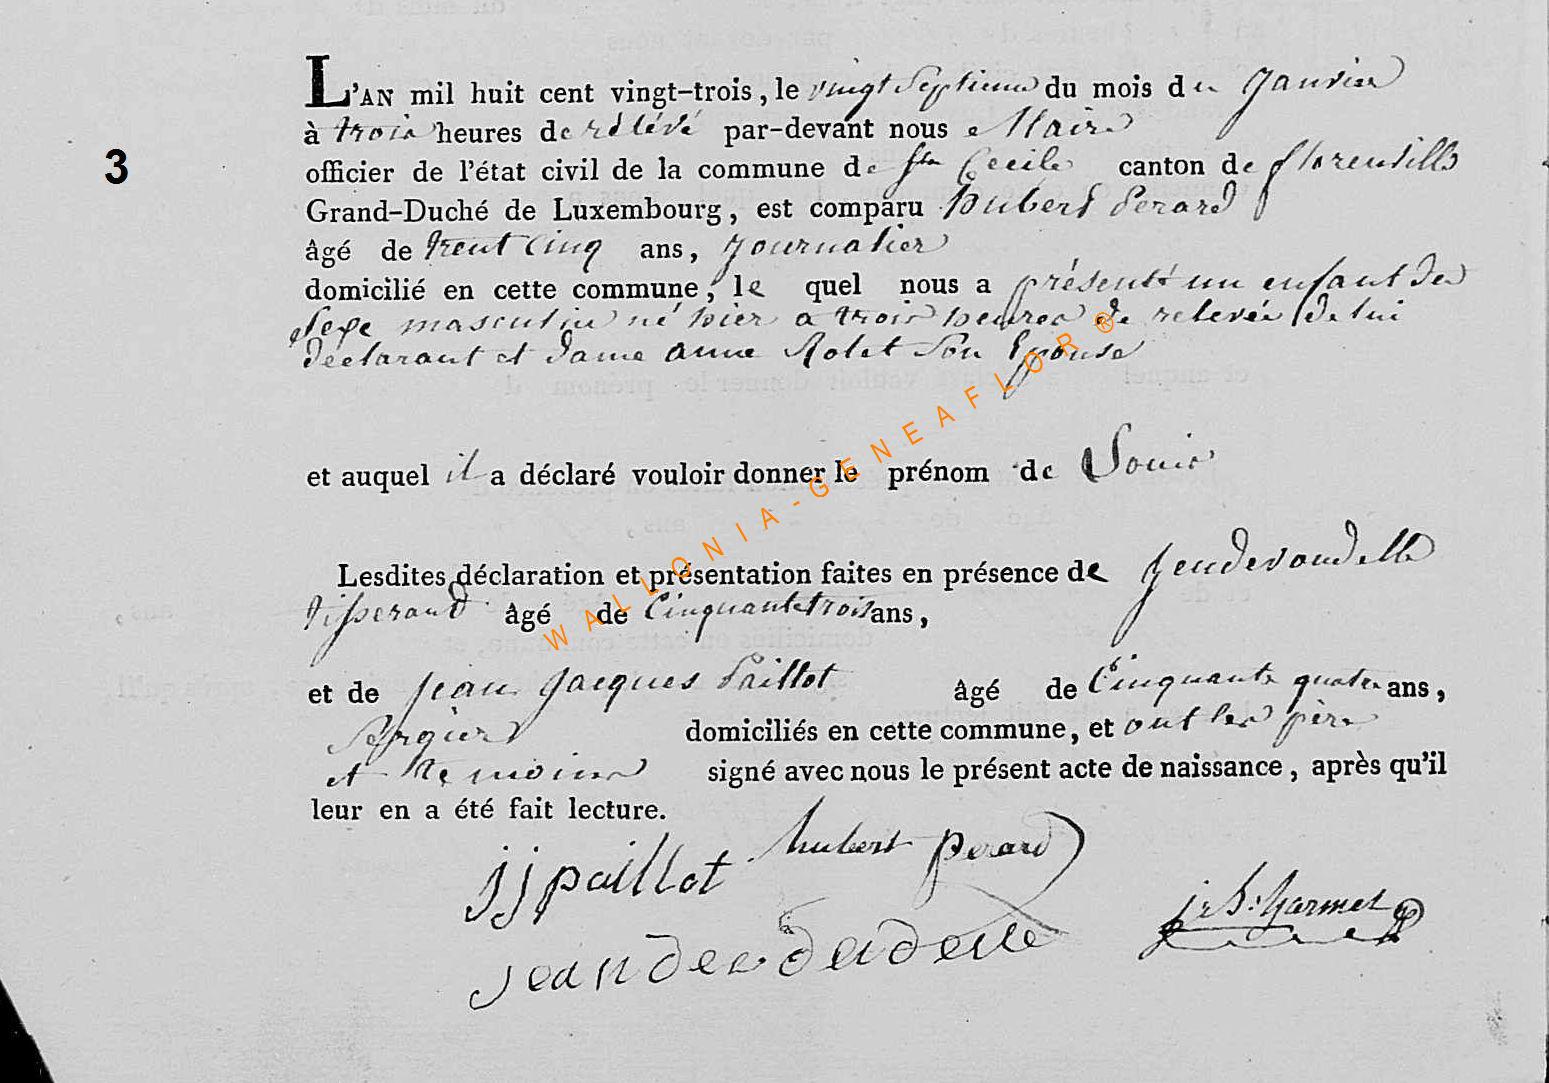 L'AN mil huit cent vingt-trois, le vingt Septieme du mois de Janvier
3
à trois heures de rélévé par-devant nous Maire
officier de l'état civil de la commune de Ste Cecile canton de florenville
Grand-Duché de Luxembourg, est comparu hubert Perard
âgé de trent Cinq ans, journalier
domicilié en cette commune, le quel nous a présenté un enfant du
Sexe masculin né hier a trois heures de relevée de lui
declarant et dame anne Rolet Son Epouse
et auquel il a déclaré vouloir donner le prénom de Louis
Lesdites déclaration et présentation faites en présence de
tisserand âgé de Cinquante trois ans,
et de jean jacques Paillot âgé de Cinquante quatre ans,
domiciliés en cette commune, et ont les père
et temoins signé avec nous le présent acte de naissance, après qu'il
leur en a été fait lecture.
hubert perard
jjpaillot
jean
WALLONIA-GENEAFLOR®